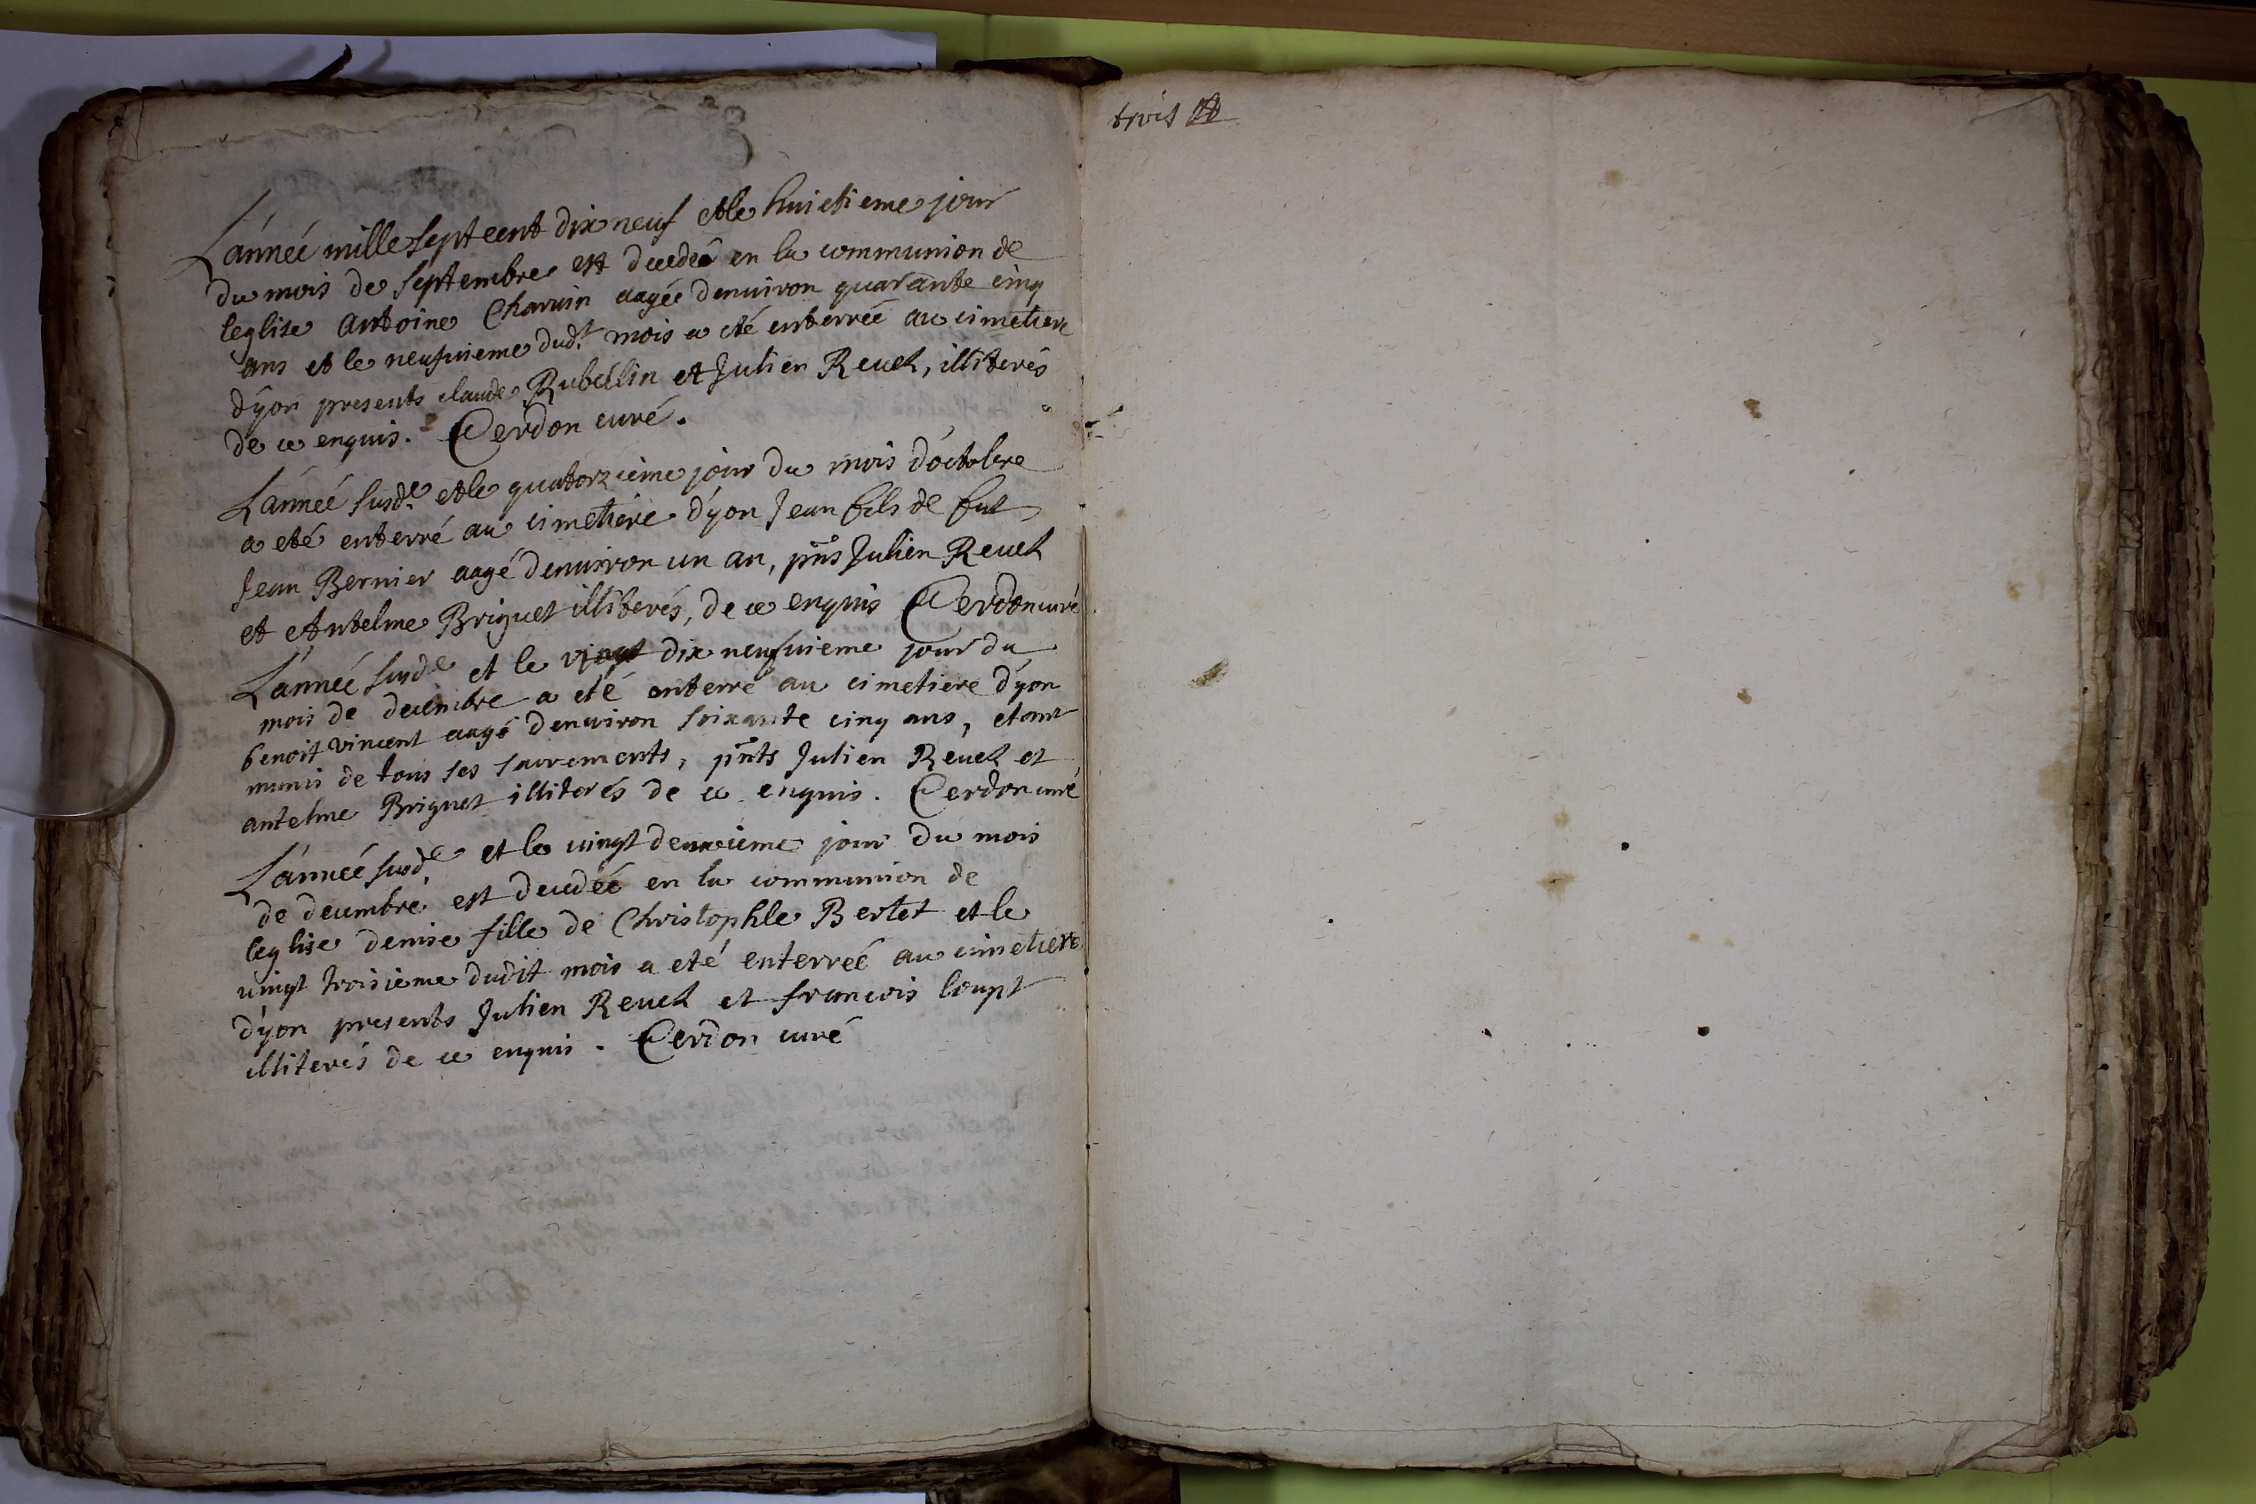 L'année mille sept cent dix neuf et le huictieme jour
du mois de septembre est decedée en la communion de
leglise antoine Charvin aagée denuiron quarante cinq
ans et le neufuieme dud.t mois a eté enterrée au cimetiere
d'yon presents claude Rubellin et Julien Reuel, illiterés
de ce enquis. Cerdon curé.
L'année susd.e et le quatorzieme jour du mois d'octobre
a eté enterré au cimetiere d'yon Jean fils de fut
Jean Bernier aagé denuiron un an, pnts Julien Reuel
et Antelme Briguet illiterés, de ce enquis Cerdon curé
L'année susd.e et le dix neufuieme jour du
mois de decembre a eté enterré au cimetiere d'yon
benoit vincent aagé denuiron soixante cinq ans, etant
munis de tous ses sacrements, pnts Julien Reuel et
antelme Briguet illiterés de ce enquis. Cerdon curé
L'année susd.e et le vingt deuxieme jour du mois
de decembre est decedée en la communion de
leglise denise fille de Christophle Bertet et le
vingt troisieme dudit mois a eté enterrée au cimetiere
d'yon presents Julien Reuel et francois loupt
illiterés de ce enquis. Cerdon curé
trois